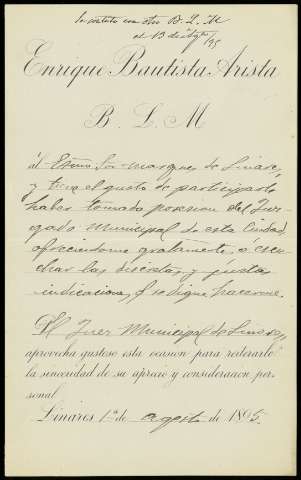 Se contestó con otro B. L. M.
el 13 de Agto/95
Enrique Bautista Arista
B. L. M
al Excmo Sor Marques de Linares,
y tiene el gusto de participarle
haber tomado posesion del Juz-
gado Municipal de esta Ciudad
ofreciendome gratamente, á escu-
char las discretas y justas
indicaciones q. se digne hacerme.
El Juez Municipal de Linares,
aprovecha gustoso esta ocasión para reiterarle
la sinceridad de su aprecio y consideración per-
sonal
Linares 1º de agosto de 1895.